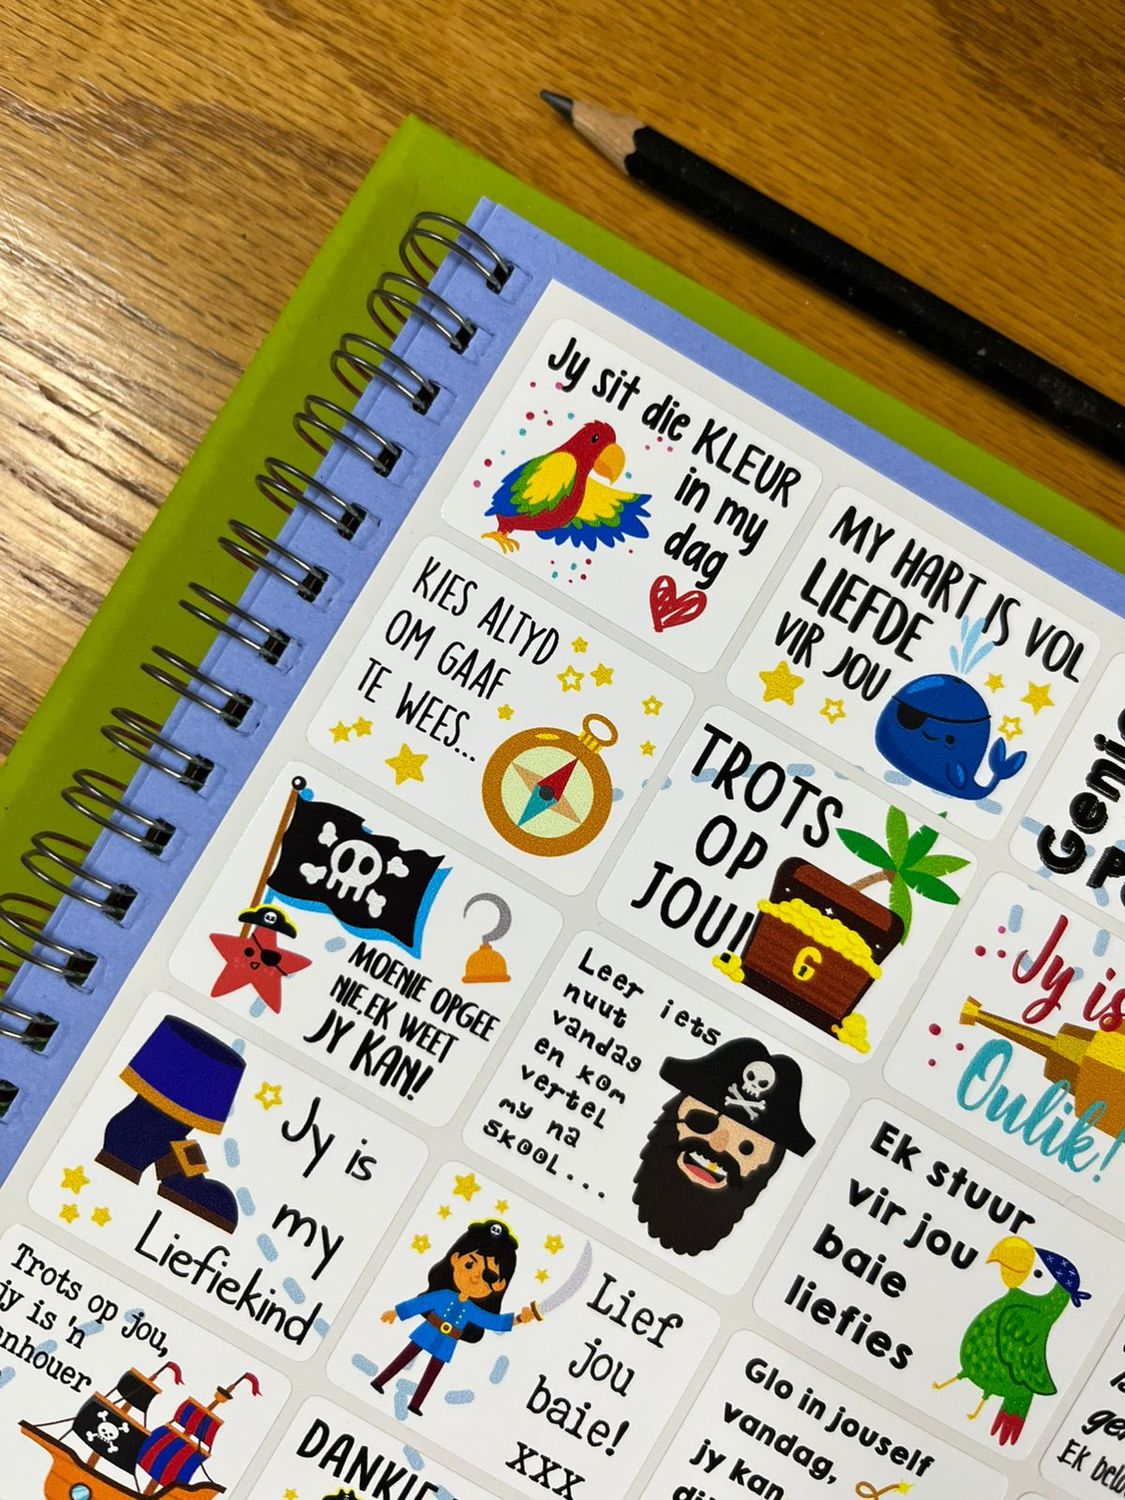 Jy sit die KLEUR
in my
dag
MY HART IS VOL
LIEFDE
VIR JOU
KIES ALTYD
OM GAAF
TE WEES...
TROTS
OP
JOU!
G
MOENIE OPGEE
NIE, EK WEET
JY KAN!
Leer iets
nuut
vandag
en kom
vertel
my na
skool...
Jy is
Oulik!
Jy is
my
Liefiekind
Lief
jou
baie!
XXX
Ek stuur
vir jou
baie
liefies
Trots op jou,
jy is 'n
DANKIE
Glo in jouself
vandag,
jy kan